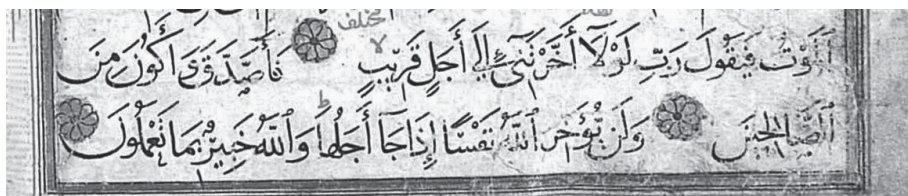 مختلف
ٱلْمَوْتُ فَيَقُولَ رَبِّ لَوْلَآ أَخَّرْتَنِىٓ إِلَىٰٓ أَجَلٍ قَرِيبٍ فَأَصَّدَّقَ وَ أَكُونَ مِنَ
ٱلصَّالِحِينَ وَلَن يُؤَخِّرَ ٱللَّهُ نَفْسًا إِذَا جَآ أَجَلُهَا وَٱللَّهُ خَبِيرٌ بِمَا تَعْمَلُونَ